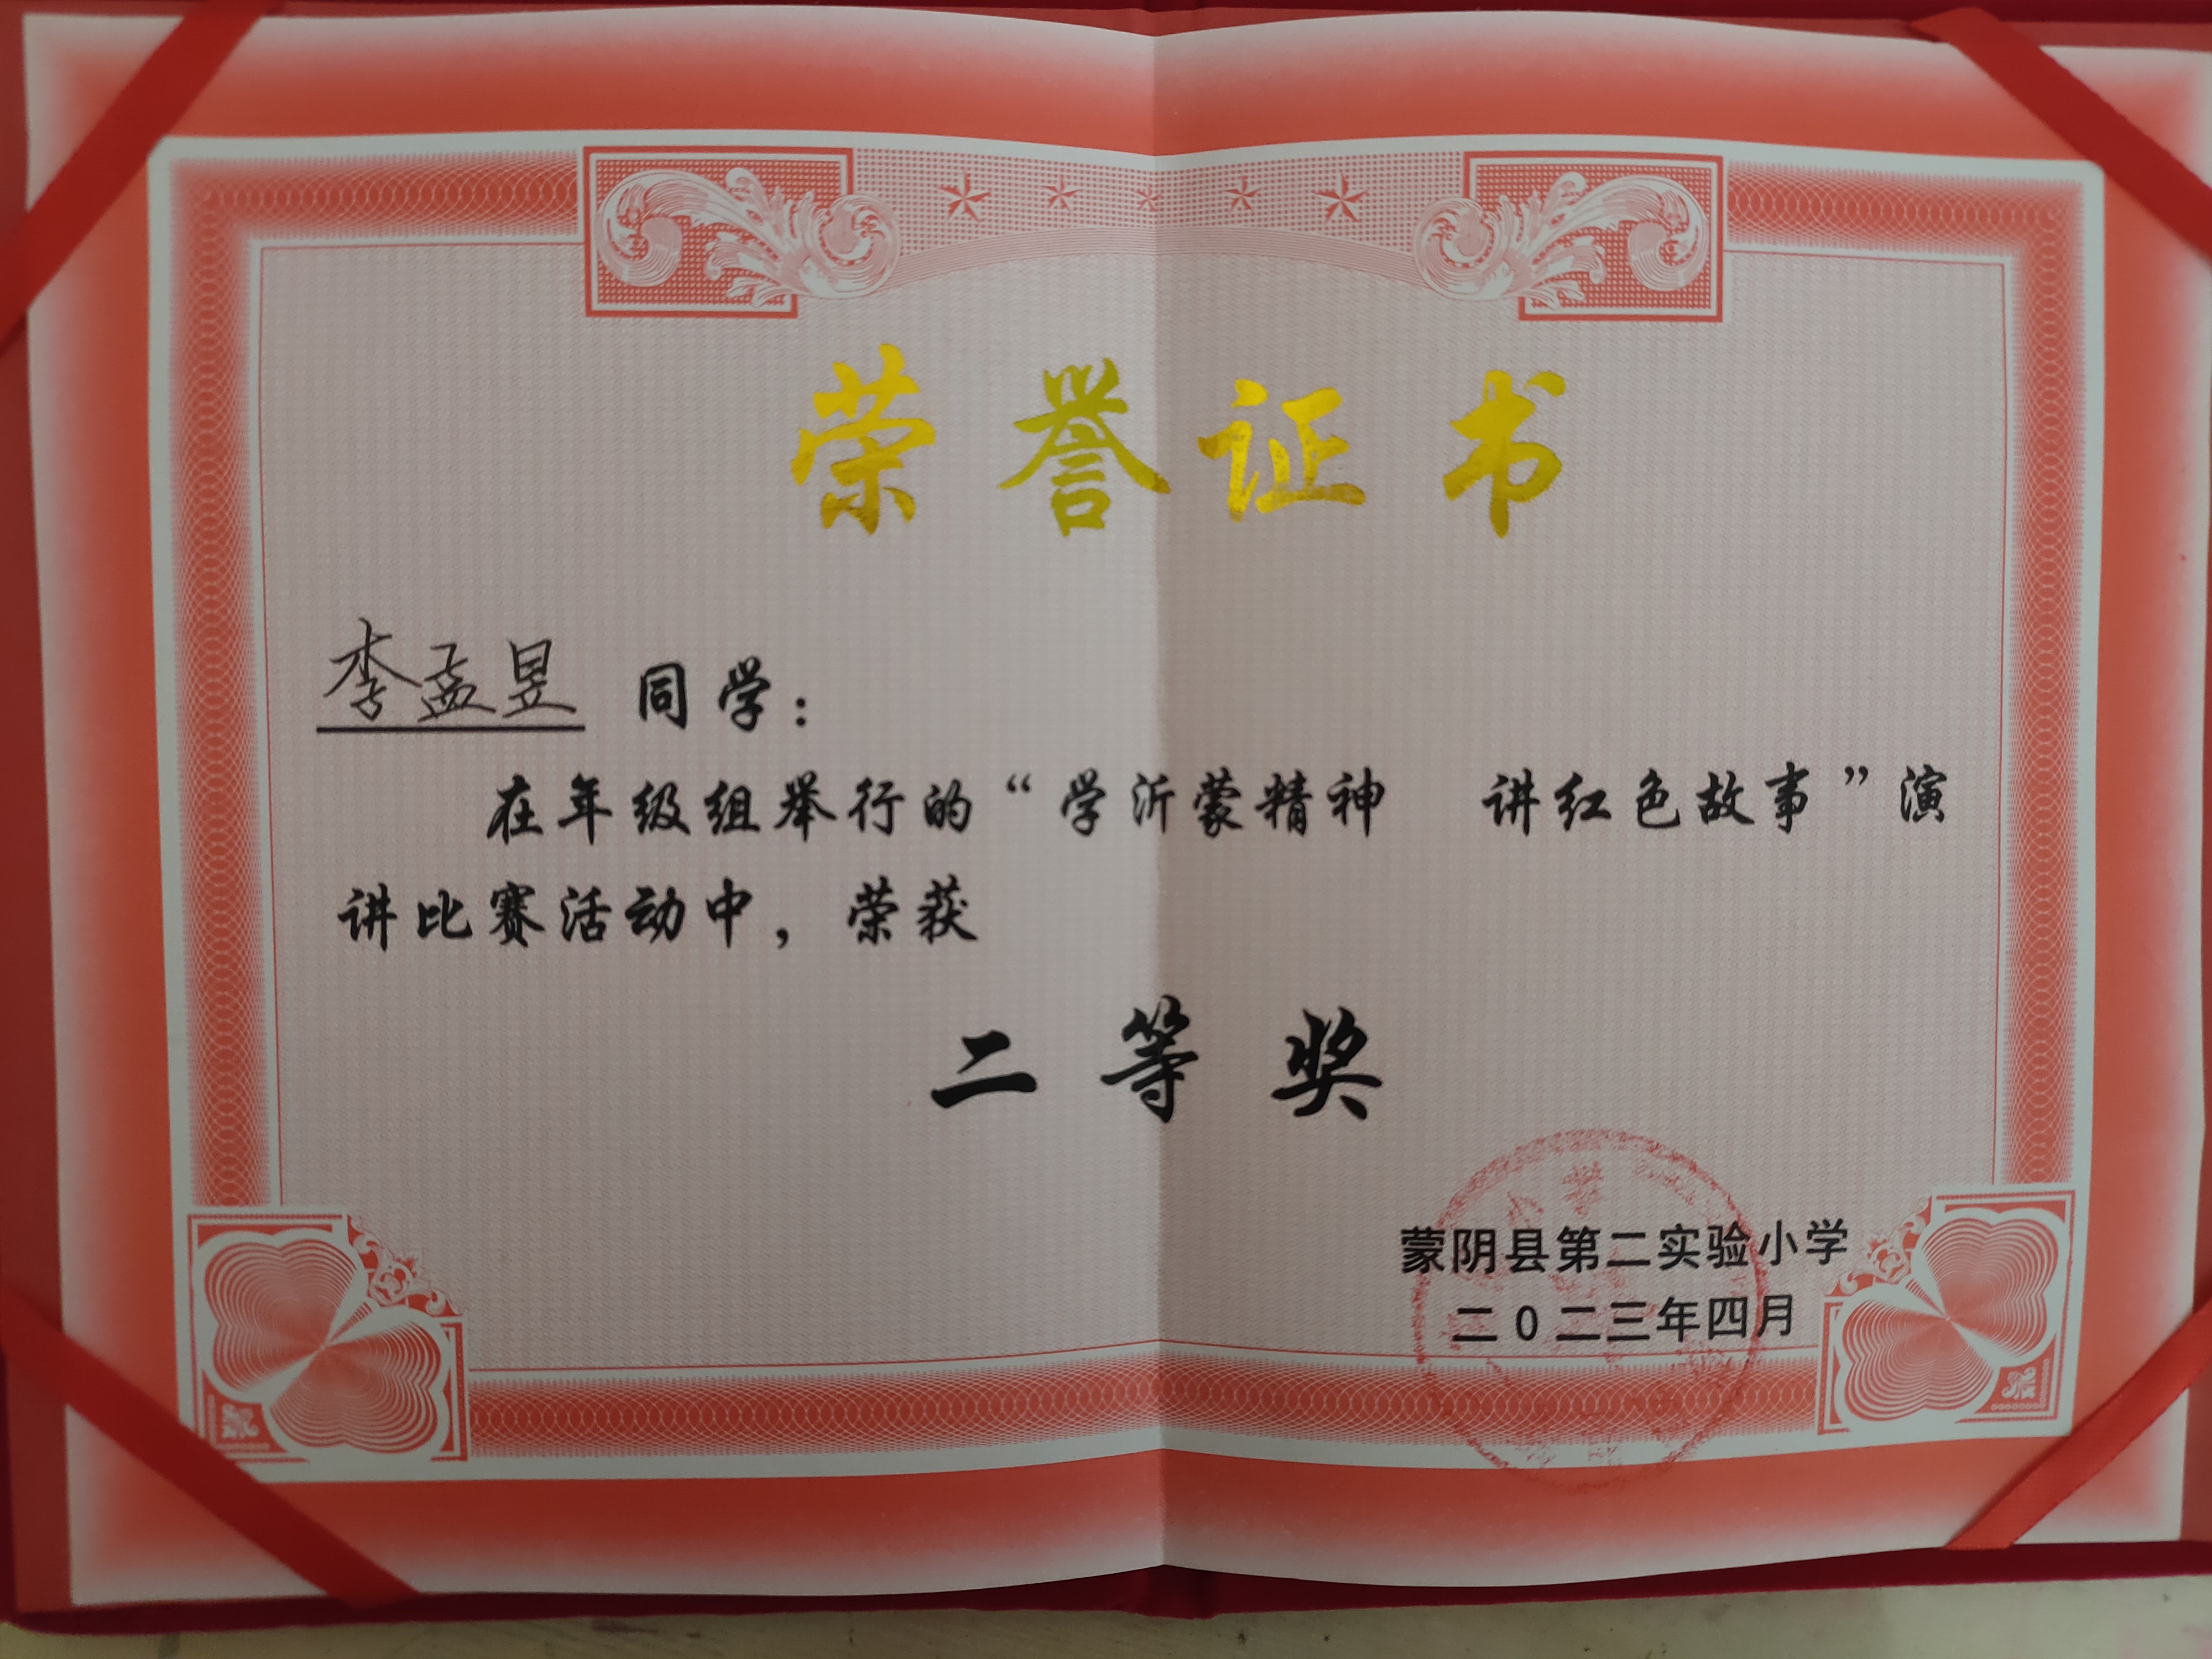 荣誉证书
李孟昱 同学：
在年级组举行的“学沂蒙精神 讲红色故事”演
讲比赛活动中，荣获
二等奖
小学
蒙阴县第二实验小学
二0二三年四月